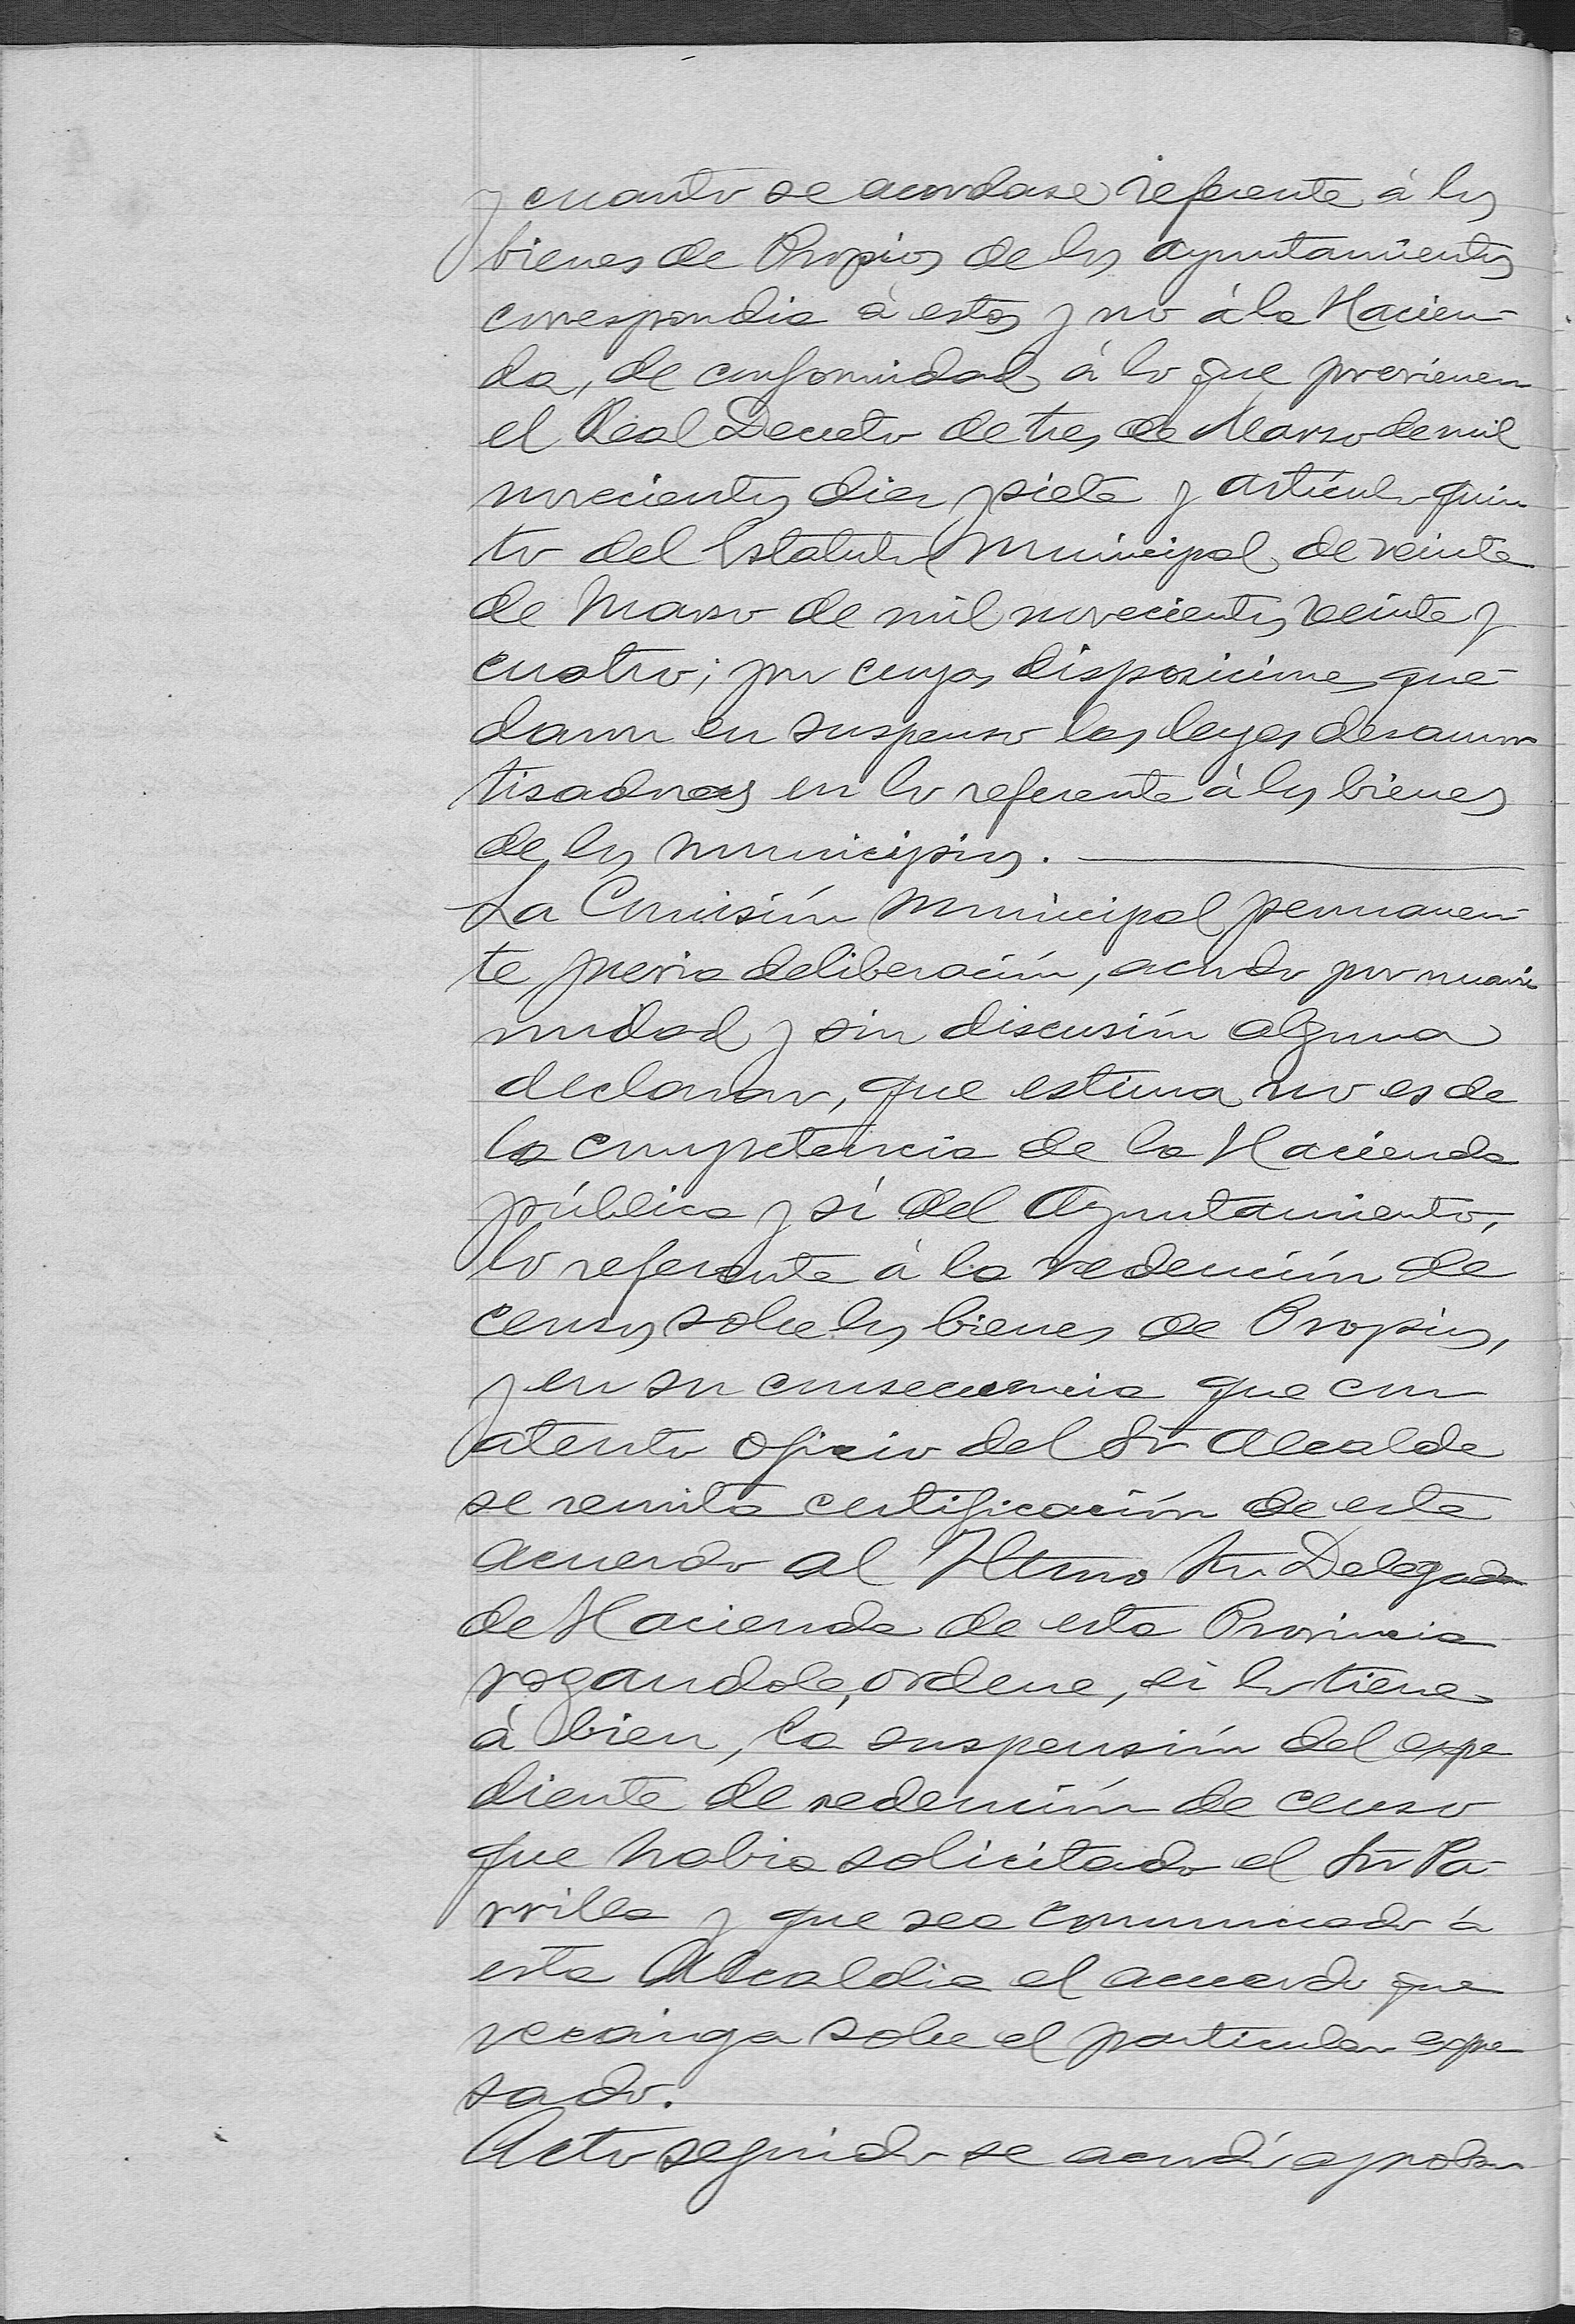 y cuanto se acordase referente á los
bienes de Propios de los Ayuntamientos
correspondia á estos y no á la Hacien-
da, de conformidad á lo que previenen
el Real Decreto de tres de Marzo de mil
novecientos diez y siete y artículo quin
to del Estatuto Municipal de veinte
de Marzo de mil novecientos veinte y
cuatro; por cuyas disposiciones que-
daron en suspenso las leyes desamor
tisadoras en lo referente á los bienes
de los municipios.
La Comisión Municipal permanen-
te previa deliberación, acordo por unani
midad y sin discusión alguna
declarar, que estima no es de
la competencia de la Hacienda
pública y sí del Ayuntamiento,
lo referente á la redención de
censos sobre los bienes de Propios,
y en su consecuencia que con
atento oficio del Sr Alcalde
se remita certificación de este
acuerdo al Iltmo Sr. Delegado
de Hacienda de esta Provincia
rogandole, ordene, si lo tiene
á bien, la suspensión del expe
diente de redención de censo
que habia solicitado el Sr Pa-
rrilla y que sea comunicado á
esta Alcaldia el acuerdo que
recaiga sobre el particular expre
sado.
Acto seguido se acordó aprobar